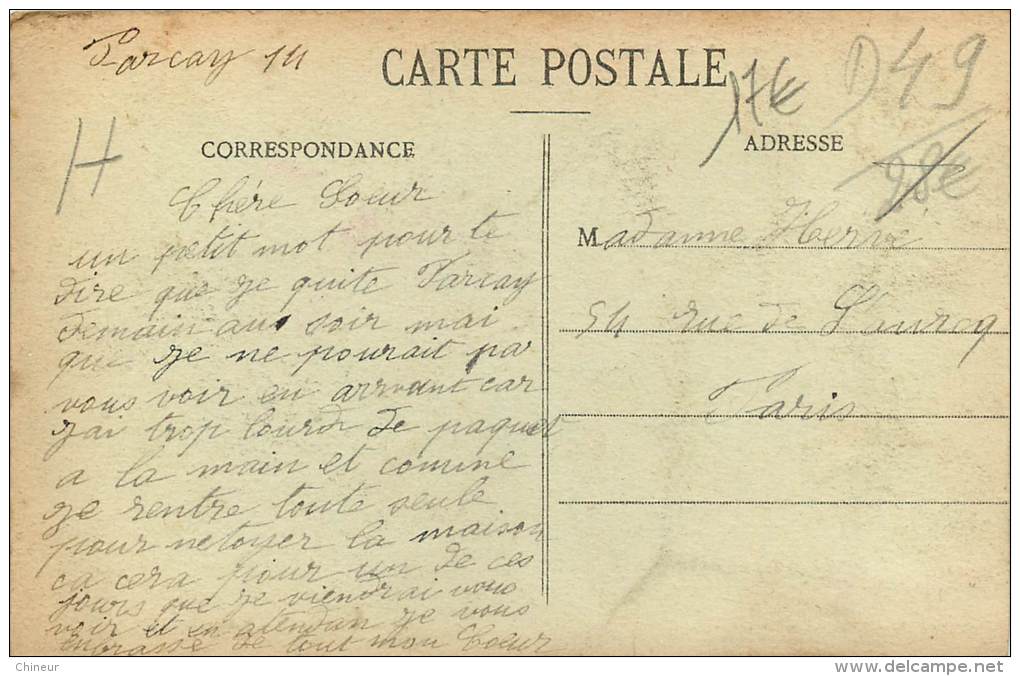 Parcay 14
CARTE POSTALE
17€
D49
28€
H
CORRESPONDANCE
ADRESSE
Chére Soeur
un petit mot pour te
dire que je quite Parcay
demain au soir mai
que je ne pourait pa
vous voir en arrivant car
jai trop lourd de paquet
a la main et comme
je rentre toute seule
pour netoyer la maison
ca cera pour un de ces
jours que je viendrai vous
voir et en atendan je vous
enbrasse de tout mon Coeur
Madame Herve
54 rue de Lourcq
Paris
Chineur
delcampe.net